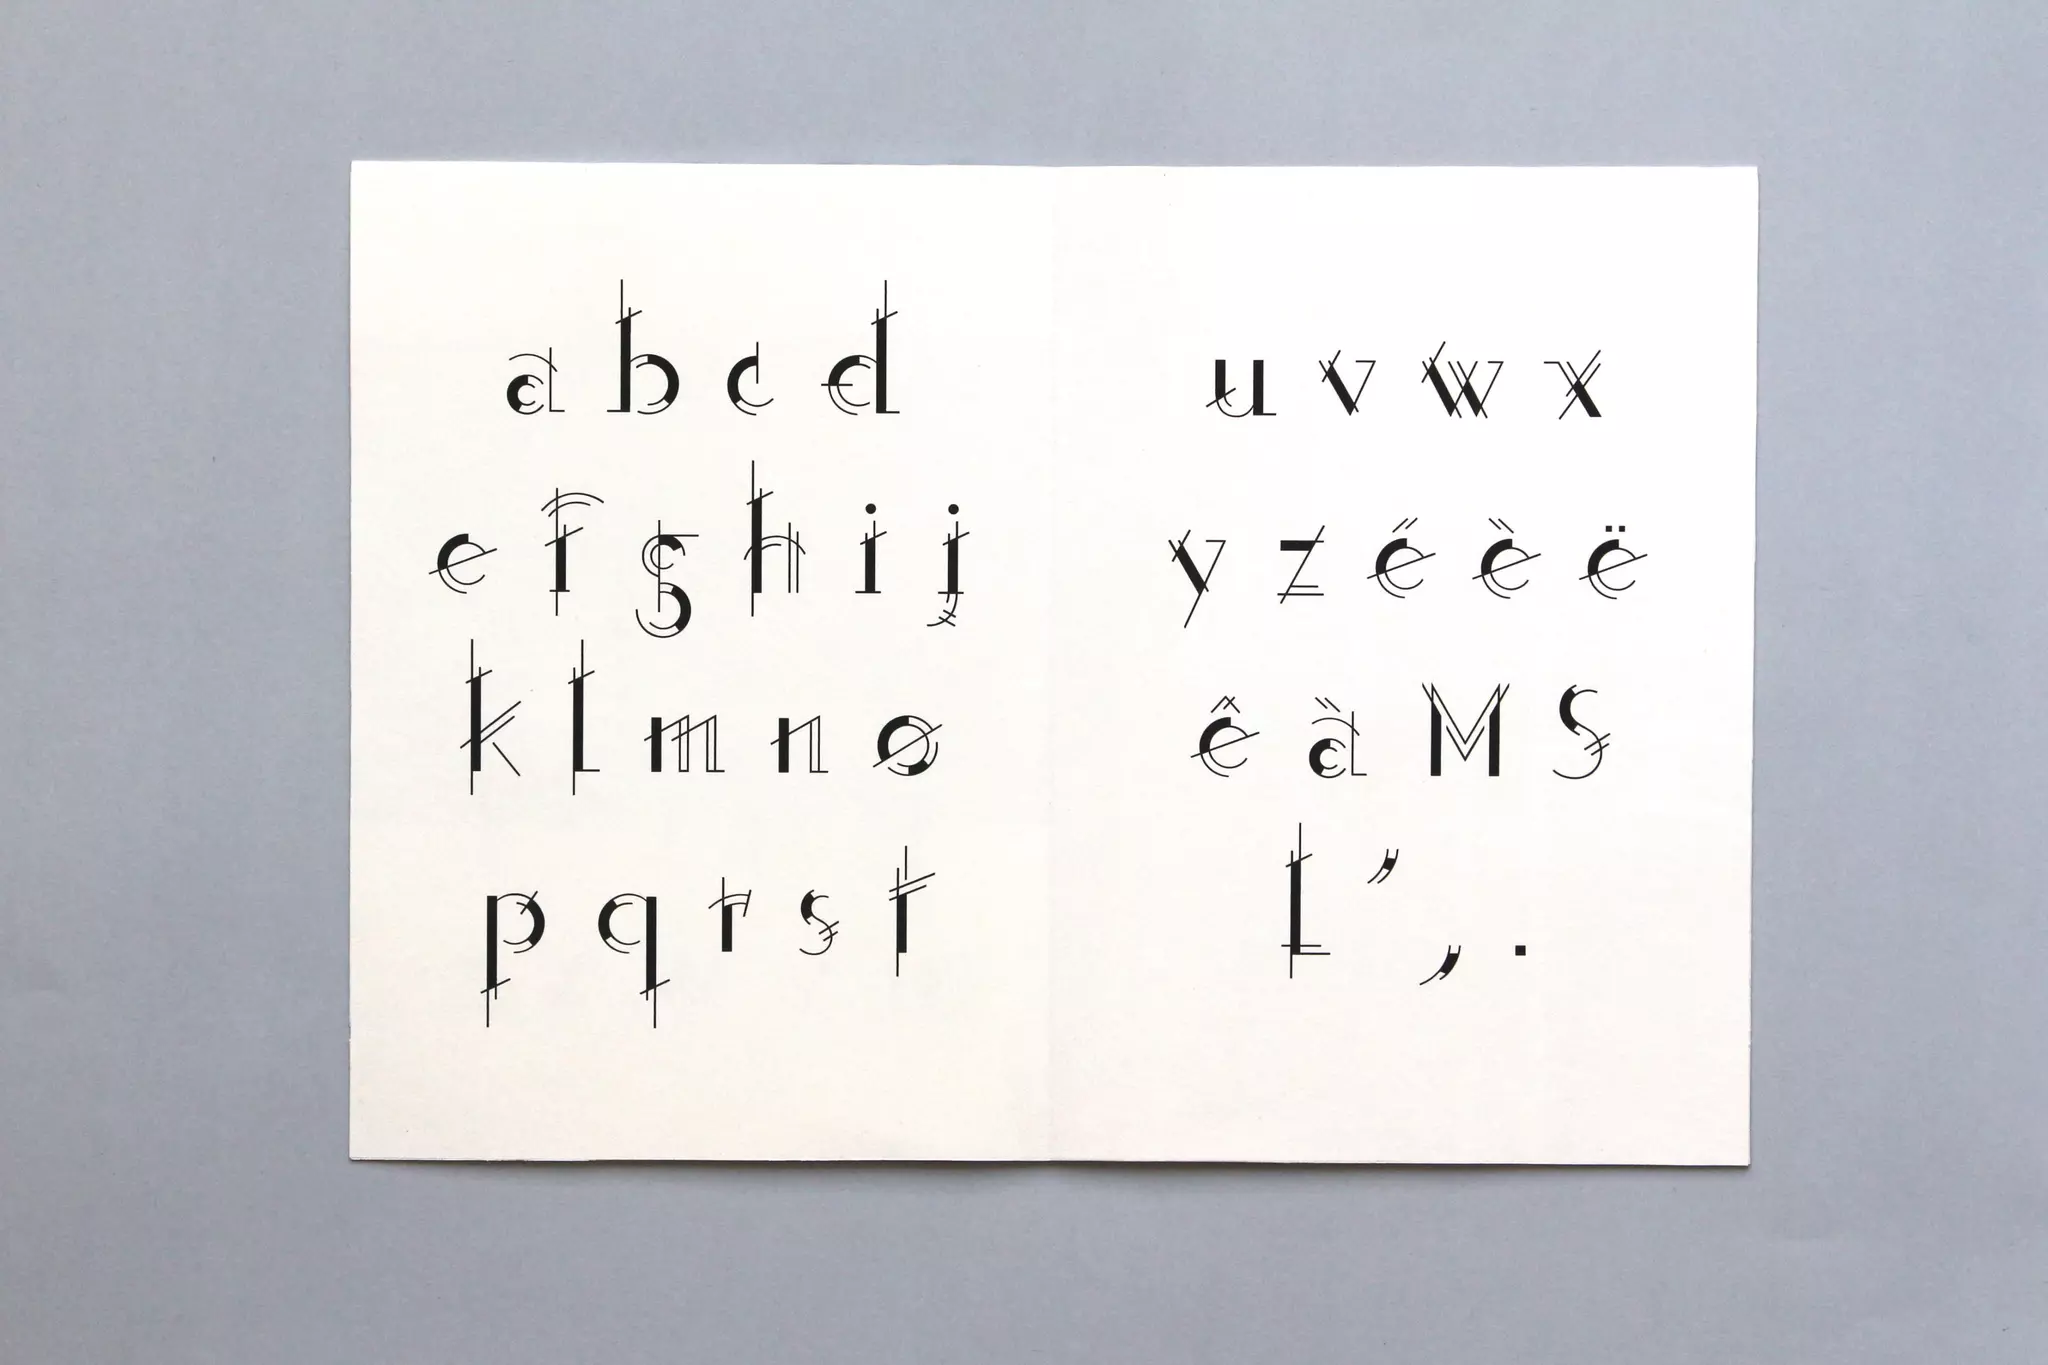 a b c d
e f g h i j
k l m n o
p q r s t
u v w x
y z é è ë
ê à M S
L ’ , .